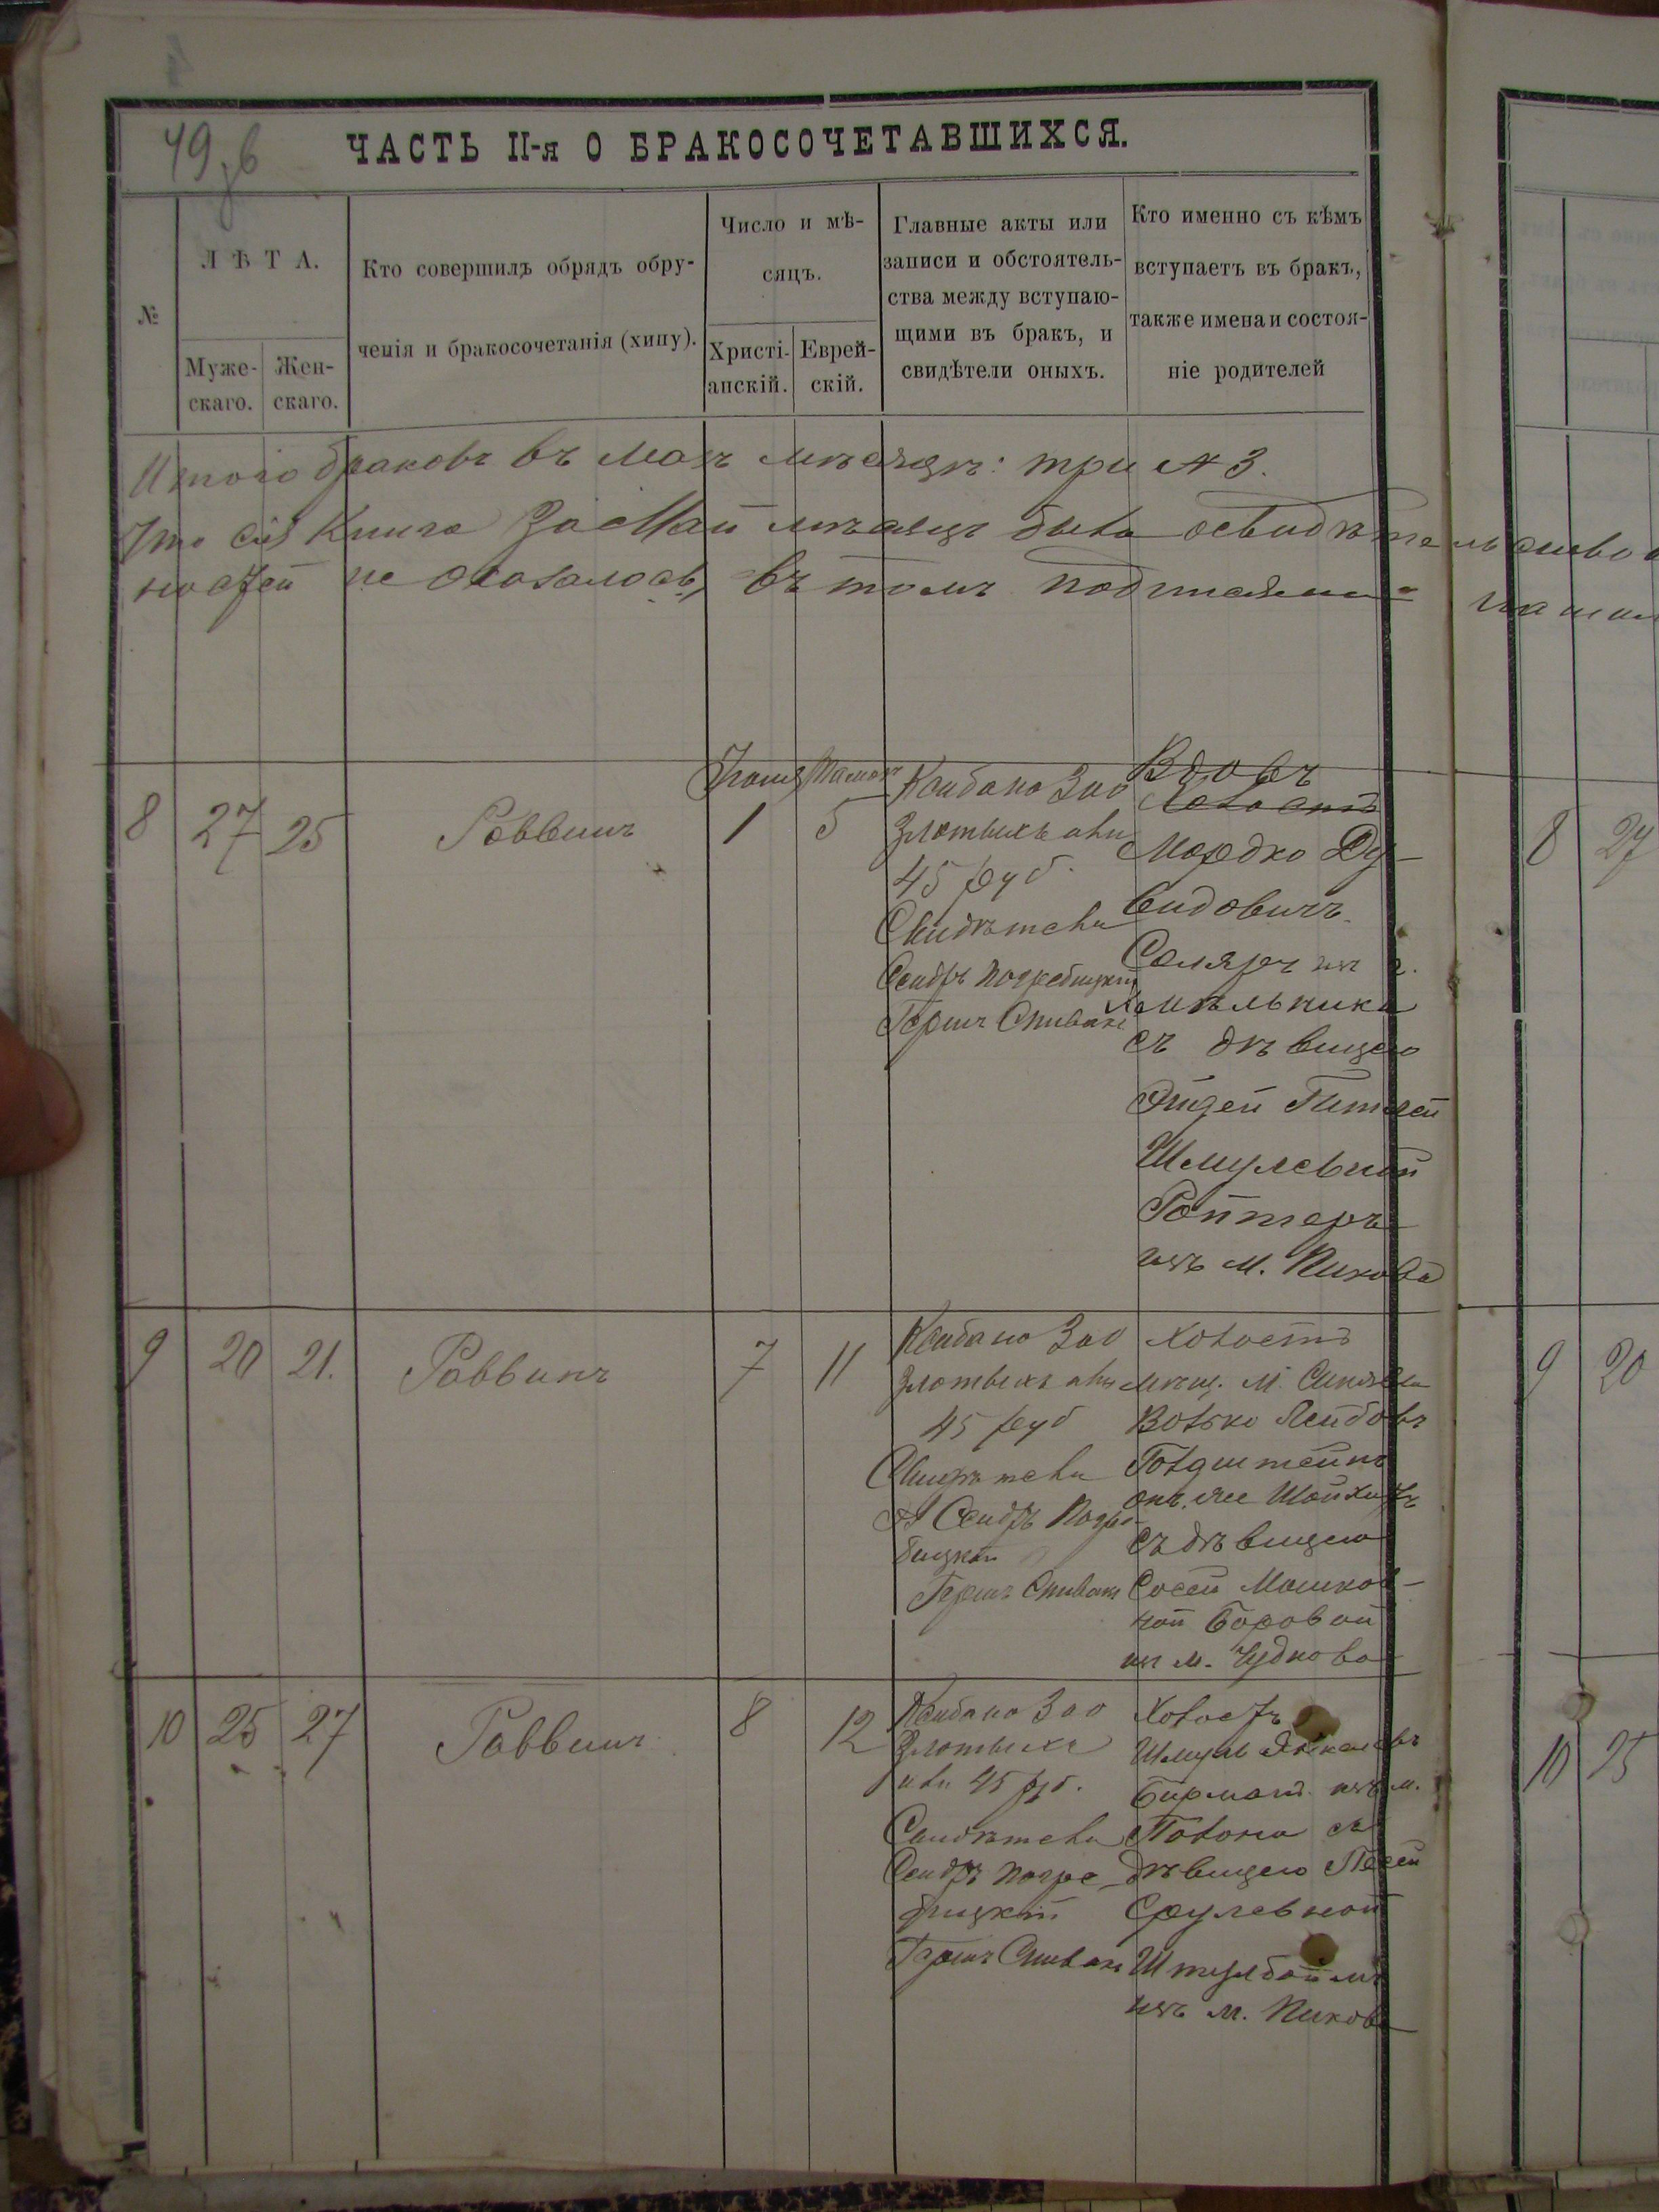 49 зв
ЧАСТЬ II-я О БРАКОСОЧЕТАВШИХСЯ.
№
ЛѢТА.
Муже-
скаго.
Жен-
скаго.
Кто совершилъ обрядъ обру-
ченія и бракосочетанія (хипу).
Число и мѣ-
сяцъ.
Христі-
анскій.
Еврей-
скій.
Главные акты или
записи и обстоятель-
ства между вступаю-
щими въ бракъ, и
свидѣтели оныхъ.
Кто именно съ кѣмъ
вступаетъ въ бракъ,
также имена и состоя-
ніе родителей
Итого браковъ въ маѣ мѣсяцѣ: три № 3.
Что сія Книга За Май мѣсяцъ была освидѣтельство
ностей не оказалось, въ томъ подписями
8
27
25
Раввинъ
Іюня
1
Тамузъ
5
Ксибано 300
злотыхъ али
45 руб.
Свидѣтели
Сендръ Погребицкій
Гершъ Спивакъ
Вдовъ
Холостъ
Мордко Ду-
видовичъ
Столяръ изъ г.
Хмѣльника
съ дѣвицею
Гитлей
Шмулевной
Ройтеръ
изъ м. Пикова
9
20
21.
Раввинъ
7
11
Ксибано 300
злотыхъ али
45 руб
Свидѣтели
Сендръ Погре-
бицкій
Гершъ Спивакъ
Холостъ
мѣщ. м. Синявы
Волько Лейбовъ
Голдштейнъ
съ дѣвицею
Сосей Мошков-
ной Боровой
изъ м. Чуднова
10
25
27
Раввинъ
8
12
Ксибано 300
Злотыхъ
али 45 руб.
Свидѣтели
Сендръ Погре-
бицкій
Гершъ Спивакъ
Холостъ
Шмуль
Бирманъ изъ м.
съ
дѣвицею Песей
Срулевной
Штулбаймъ
изъ м. Пикова
8
27
9
20
10
25